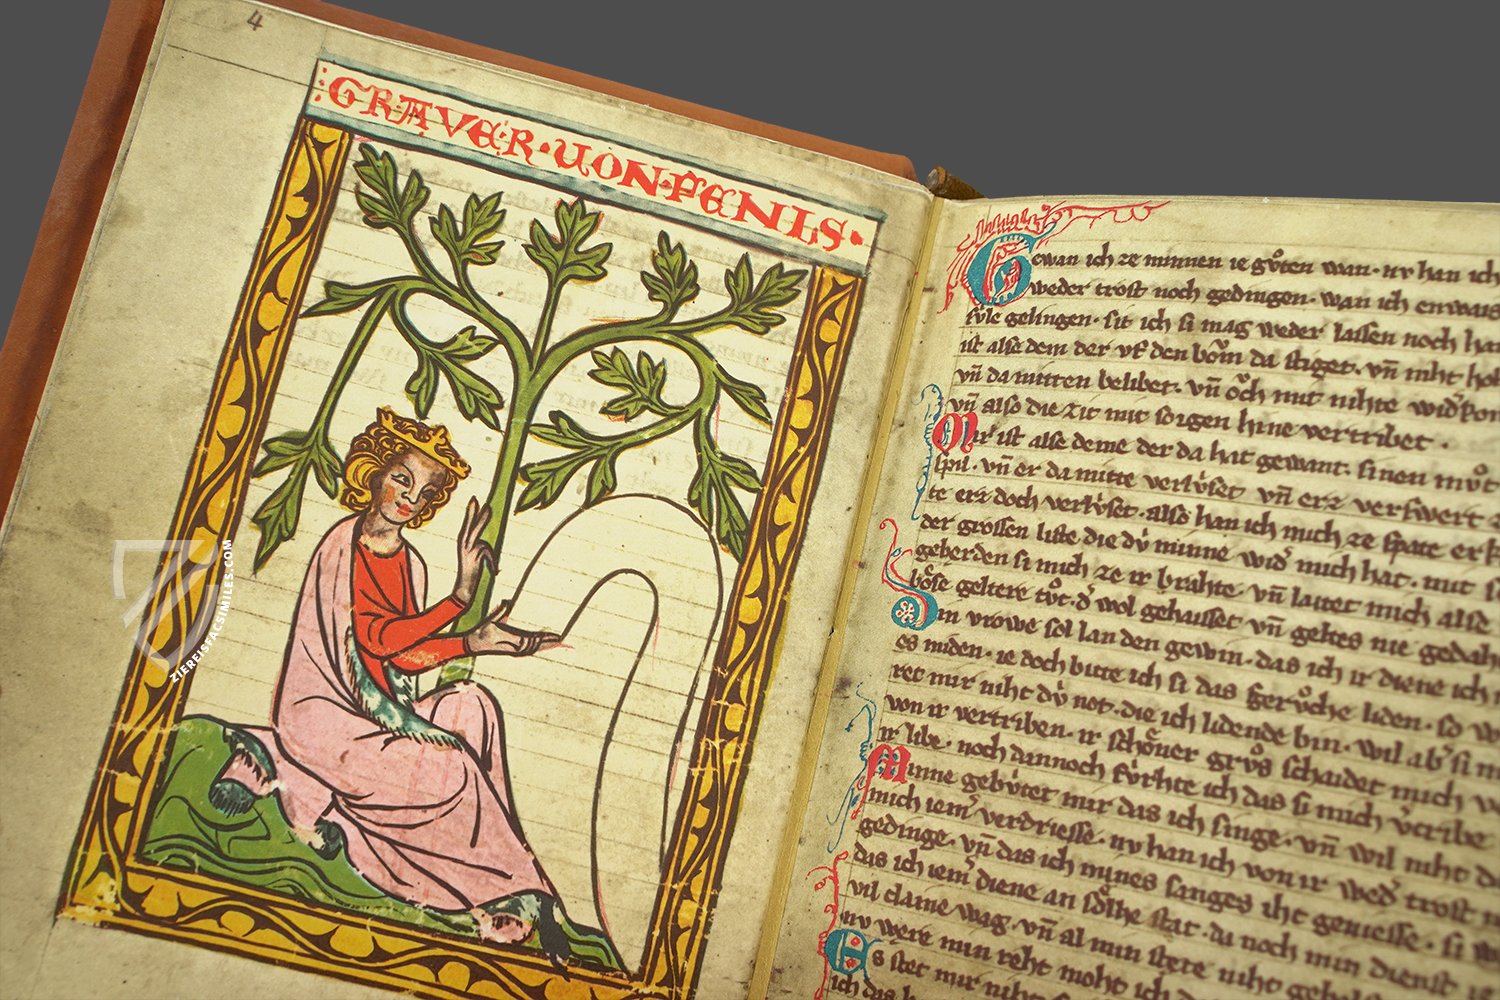 4
GRAVE·R·VON·FENIS·
Gewan ich ze minnen ie gůten wan· nv han ich
weder trost noch gedingen· wan ich enwais
svle gelingen· sit ich si mag weder lassen noch han
ist alse dem der vf den bȏm da stiget· vn̄ niht hoh
vn̄ da mitten belibet· vn̄ ȏch mit nihte wid'kom
vn̄ also die zit mit sorgen hine vertribet·
Mir ist alse deme der da hat gewant· sinen mům
spil· vn̄ er da mitte verlv̇set vn̄ erz verswert
te erz doch verlv̇set· also han ich mich ze spate
der grossen liste die dv̇ minne wid' mich hat· mit
geberden si mich ze ir brahte· vn̄ laitet mich alse
bȏse geltere tůt· d' wol gehaisset vn̄ geltes nie gedah
Min vrowe sol lan den gewin· das ich ir diene ich
es miden· ie doch bitte ich si das si gerůche liden· so
ret mir niht dv̇ not· die ich lidende bin· wil ab' si
von ir vertriben· ir schȏner grůs schaidet mich
ir libe· noch dannoch fv̇rhte ich das si mich v'tribe
Minne gebv̇tet mir das ich singe· vn̄ wil niht
mich iem' verdriesse· nv han ich von ir wed' trost
gedinge· vn̄ das ich mines sanges iht geniesse· si
das ich iem' diene an sȏlhe stat· da noch min dienst
vil claine wag· vn̄ al min stete niht
nv were min reht moht ich
Es stet mir niht
ich das
ZIEREIS FACSIMILES.COM